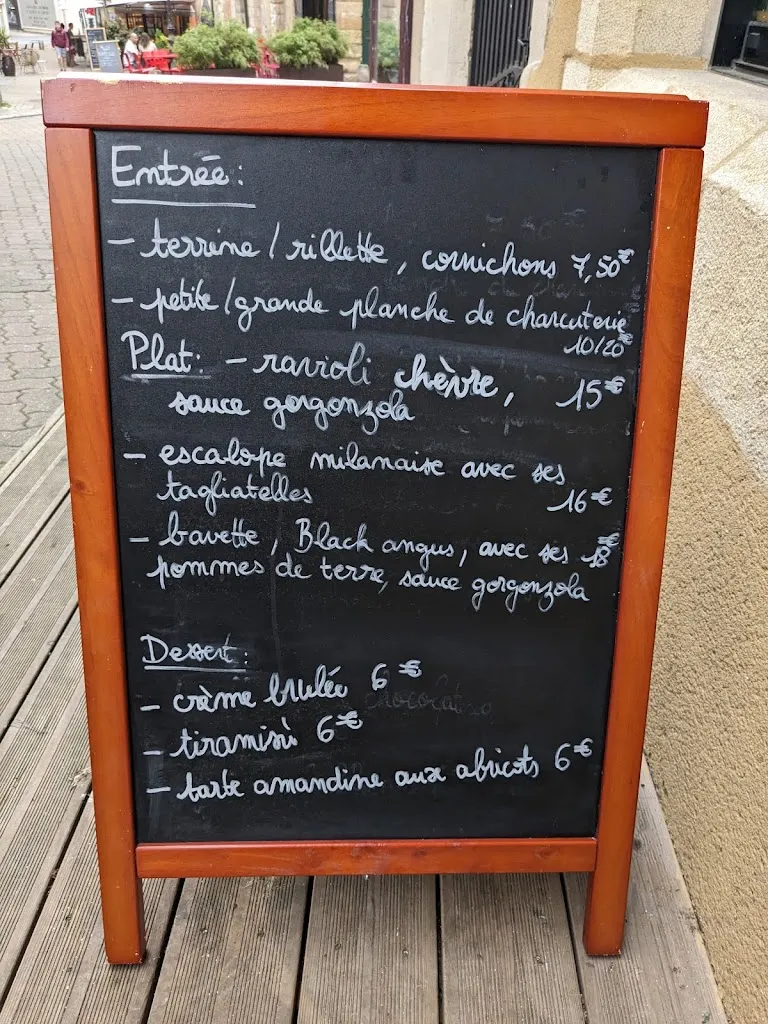 Entrée:
- terrine / rillette, cornichons 7,50€
- petite/grande planche de charcuterie
10/20€
Plat: - ravioli chèvre, 15€
sauce gorgonzola
- escalope milanaise avec ses
tagliatelles 16€
- bavette, Black angus, avec ses 18€
pommes de terre, sauce gorgonzola
Dessert:
- crème brulée 6€
- tiramisù 6€
- tarte amandine aux abricots 6€